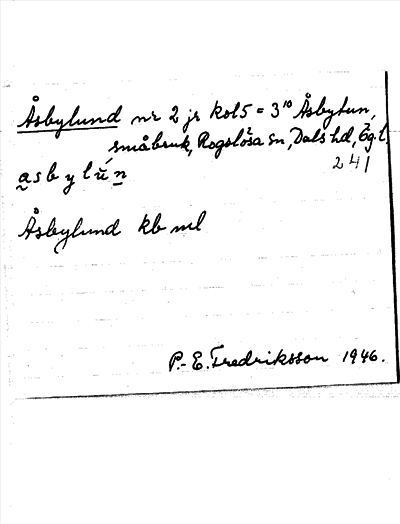 Åsbylund nr 2 jr kol5 = 3¹⁰ Åsbylun,
småbruk, Rogslösa sn, Dals hd, Ög.l.
241
a s b y l ŭ́ n
Åsbylund kb ml
P.-E. Fredriksson 1946.